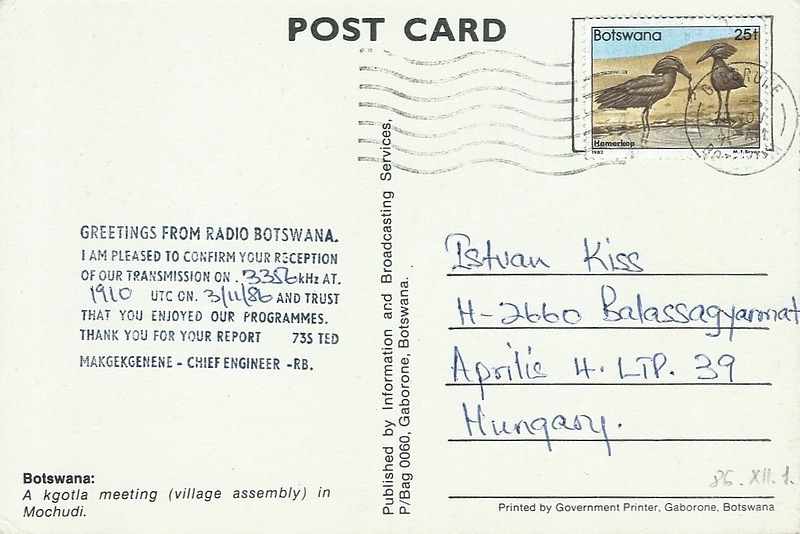 POST CARD
Botswana 25t
Hamerkop
1982 M.F. Bryan
GABORONE
GREETINGS FROM RADIO BOTSWANA.
I AM PLEASED TO CONFIRM YOUR RECEPTION
OF OUR TRANSMISSION ON . 3356 kHz AT.
1910 UTC ON. 3/11/86 AND TRUST
THAT YOU ENJOYED OUR PROGRAMMES.
THANK YOU FOR YOUR REPORT 73S TED
MAKGEKGENENE - CHIEF ENGINEER -RB.
Botswana:
A kgotla meeting (village assembly) in
Mochudi.
Published by Information and Broadcasting Services,
P/Bag 0060, Gaborone, Botswana.
Istvan Kiss
H-2660 Balassagyarmat
Aprilis 4. LTP. 39
Hungary.
86. XII. 1.
Printed by Government Printer, Gaborone, Botswana